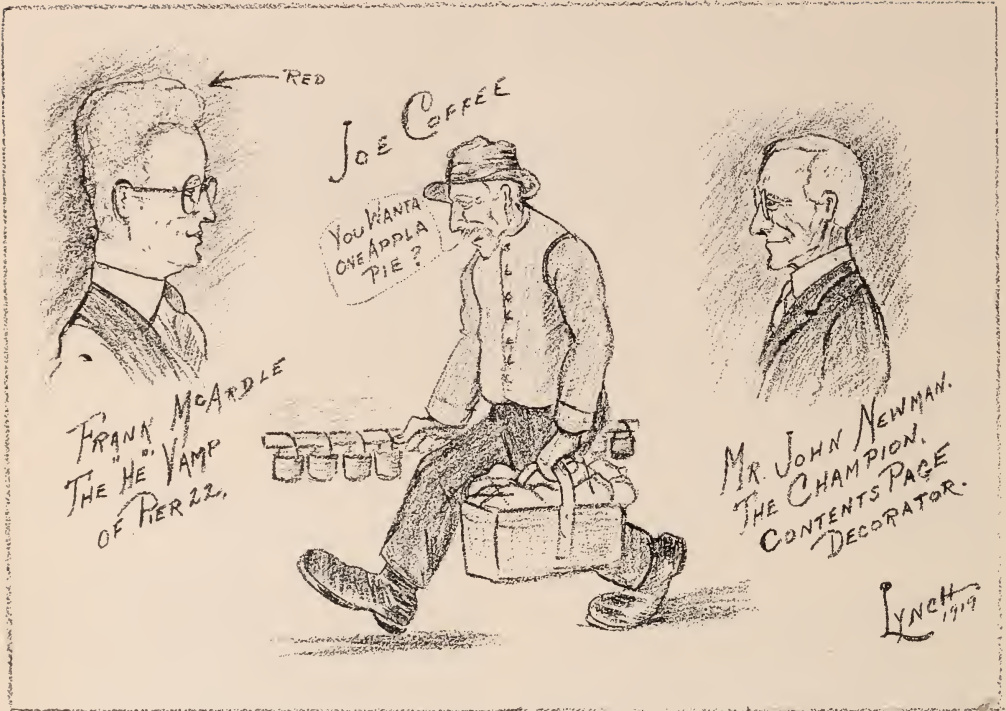 RED
JOE COFFEE
YOU WANTA
ONE APPLA
PIE?
FRANK MCARDLE
THE "HE" VAMP
OF PIER 22.
MR. JOHN NEWMAN.
THE CHAMPION.
CONTENTS PAGE
DECORATOR.
LYNCH
1919